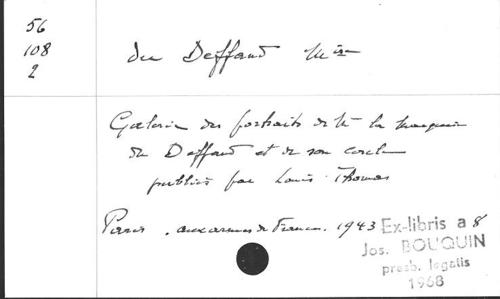 56
108
2
du Deffand Mise
Galerie des portraits de Me la marquise
du Deffand et de son cercle
publiés par Louis Thomas
Paris. aux armes de France. 1943
Ex-libris a 8
Jos. BOUQUIN
presb. legatis
1968